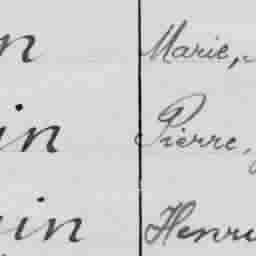 n Marie,
in Pierre,
in Henri